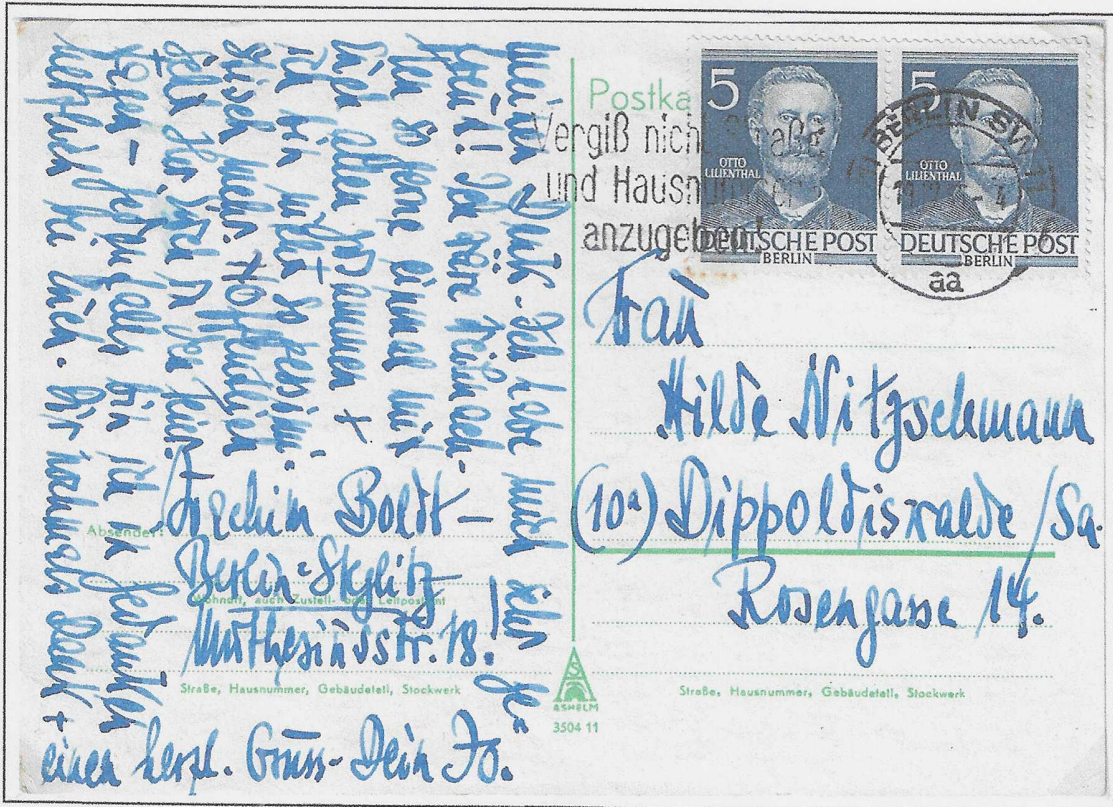 meinen Dank - Ich habe mich sehr ge=
freut! Ich wäre
so gerne einmal mit
allen zusammen +
ich bin nicht so pessimi-
stisch mehr. Hoffentlich
geht
sagen -
herzlich bei Euch. Dir nochmals Dank +
einen herzl. Gruss - Dein Jo.
Absender:
Joachim Boldt -
Berlin-Steglitz
Wohnort, auch Zustell- oder Leitpostamt
Muthesiusstr. 18.
Straße, Hausnummer, Gebäudeteil, Stockwerk
Postka
Vergiß nicht Straße
und Hausnummer
anzugeben!
5
OTTO
LILIENTHAL
DEUTSCHE POST
BERLIN
5
OTTO
LILIENTHAL
DEUTSCHE POST
BERLIN
BERLIN SW 11
aa
Frau
Hilde Nitzschmann
(10a) Dippoldiswalde/Sa.
Rosengasse 14.
Straße, Hausnummer, Gebäudeteil, Stockwerk
S
ASHELM
3504 11